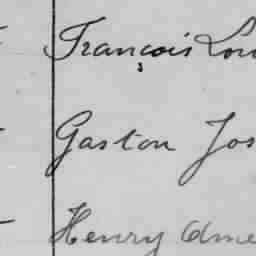 François Lou
Gaston Jos
Henry Ame